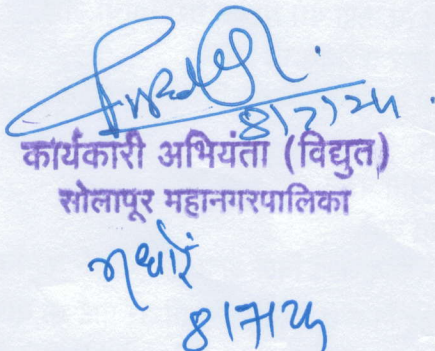 8/7/24
कार्यकारी अभियंता (विद्युत)
सोलापूर महानगरपालिका
8/7/24